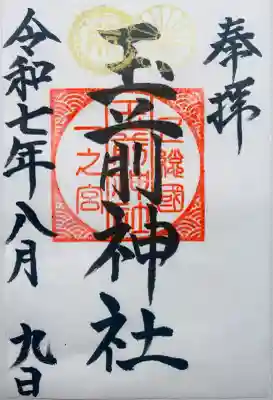 奉拝
玉前神社
上総國
玉前神社
一之宮
令和七年八月九日